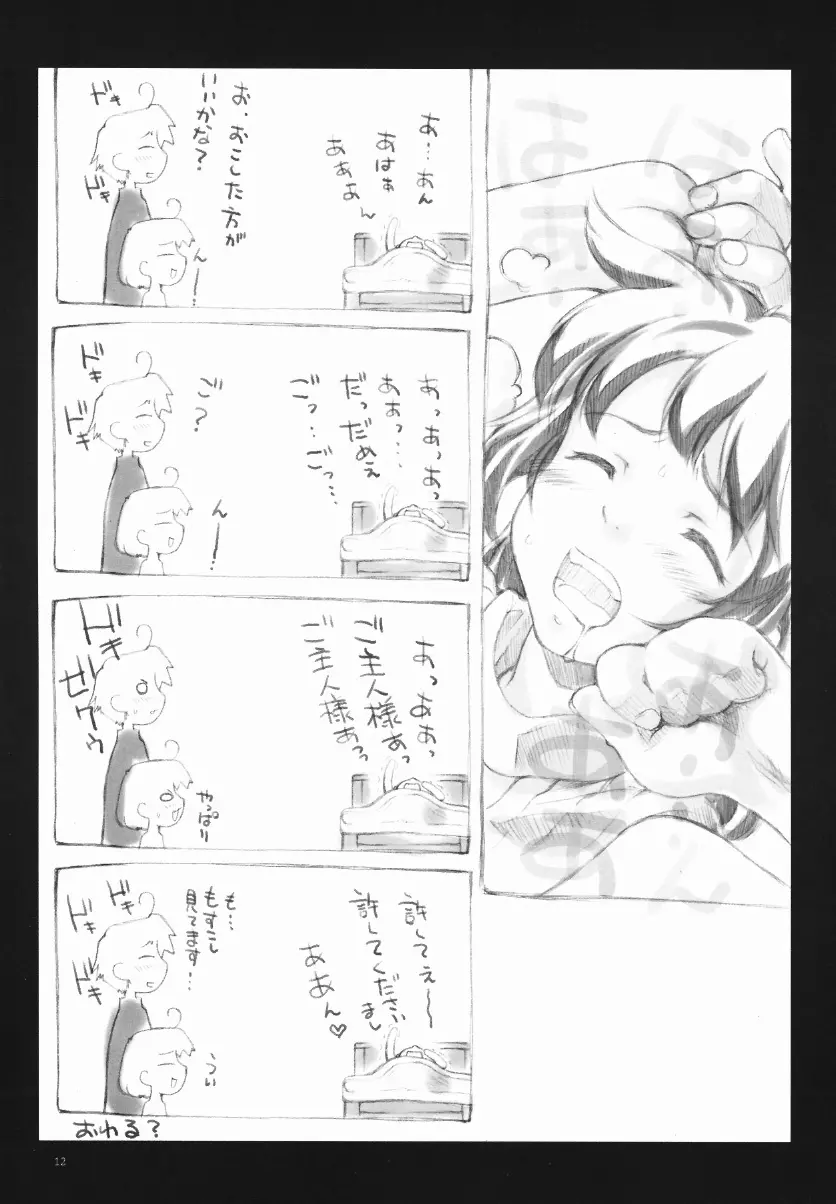 あ…あん
あはぁ
あああん
お、おこした方が
いいかな?
ドキ
ドキ
んー…
あっあっあっ
あぁっ…
だっだめえ
ごっ…ごっ…
ご?
ドキ
ドキ
んー…
あっああっ
ご主人様あっ
ご主人様あっ
ドキ
ゼクゥ
やっぱり
許してえ〜
許してくださいまし
ああん♡
も…
もすこし
見てます…
ドキ
ドキ
ドキ
うぃ
おわる?
12